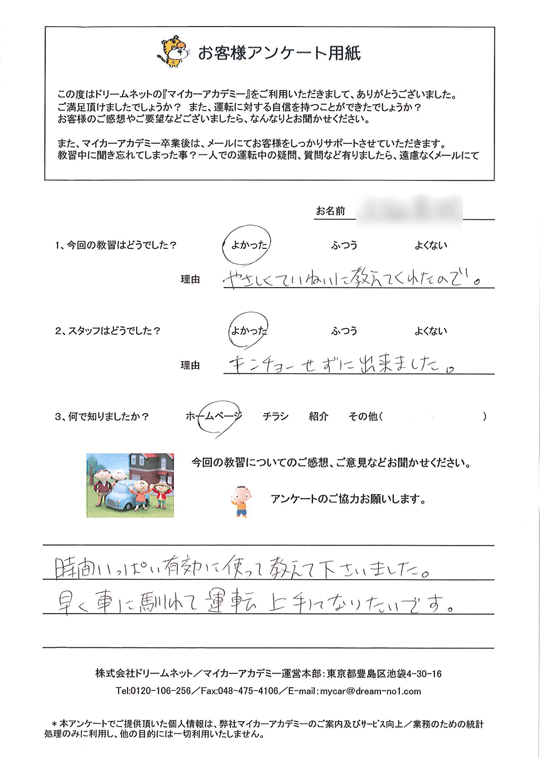 お客様アンケート用紙
この度はドリームネットの『マイカーアカデミー』をご利用いただきまして、ありがとうございました。
ご満足頂けましたでしょうか？ また、運転に対する自信を持つことができたでしょうか？
お客様のご感想やご要望などございましたら、なんなりとお聞かせください。
また、マイカーアカデミー卒業後は、メールにてお客様をしっかりサポートさせていただきます。
教習中に聞き忘れてしまった事？一人での運転中の疑問、質問など有りましたら、遠慮なくメールにて
お名前
1、今回の教習はどうでした？ よかった ふつう よくない
理由 やさしくていねいに教えてくれたので。
2、スタッフはどうでした？ よかった ふつう よくない
理由 キンチョーせずに出来ました。
3、何で知りましたか？ ホームページ チラシ 紹介 その他( )
今回の教習についてのご感想、ご意見などお聞かせください。
アンケートのご協力お願いします。
時間いっぱい有効に使って教えて下さいました。
早く車に馴れて運転上手になりたいです。
株式会社ドリームネット／マイカーアカデミー運営本部：東京都豊島区池袋4-30-16
Tel:0120-106-256／Fax:048-475-4106／E-mail:mycar@dream-no1.com
＊本アンケートでご提供頂いた個人情報は、弊社マイカーアカデミーのご案内及びサービス向上／業務のための統計
処理のみに利用し、他の目的には一切利用いたしません。